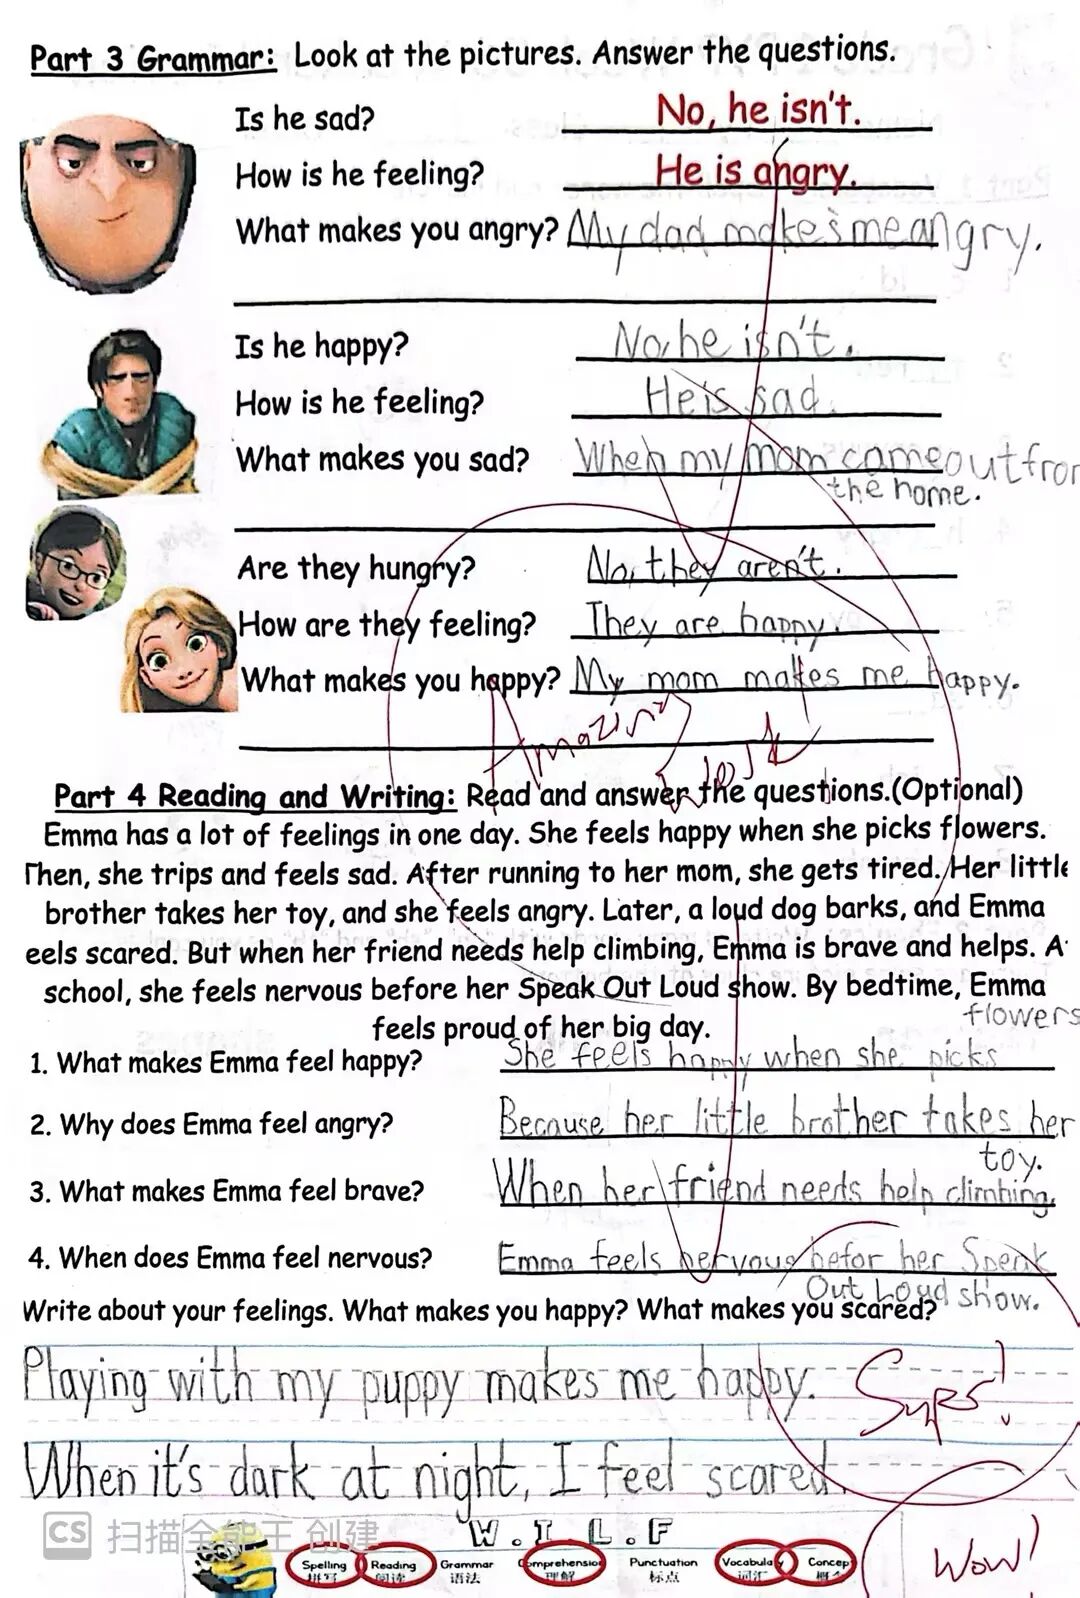 Part 3 Grammar: Look at the pictures. Answer the questions.
Is he sad? No, he isn't.
How is he feeling? He is angry.
What makes you angry? My dad makes me angry.
Is he happy? No, he isn't.
How is he feeling? He is sad.
What makes you sad? When my mom came out from
the home.
Are they hungry? No, they aren't.
How are they feeling? They are happy.
What makes you happy? My mom makes me happy.
Amazing
Work
Part 4 Reading and Writing: Read and answer the questions.(Optional)
Emma has a lot of feelings in one day. She feels happy when she picks flowers.
Then, she trips and feels sad. After running to her mom, she gets tired. Her little
brother takes her toy, and she feels angry. Later, a loud dog barks, and Emma
eels scared. But when her friend needs help climbing, Emma is brave and helps. A
school, she feels nervous before her Speak Out Loud show. By bedtime, Emma
feels proud of her big day.
flowers
1. What makes Emma feel happy? She feels happy when she picks
2. Why does Emma feel angry? Because her little brother takes her
toy.
3. What makes Emma feel brave? When her friend needs help climbing.
4. When does Emma feel nervous? Emma feels nervous befor her Speak
Out Loud show.
Write about your feelings. What makes you happy? What makes you scared?
Playing with my puppy makes me happy.
When it's dark at night, I feel scared.
CS 扫描全能王 创建
W.I.L.F
Spelling Reading Grammar Comprehension Punctuation Vocabulary Concept
拼写 阅读 语法 理解 标点 词汇 概念
Wow!